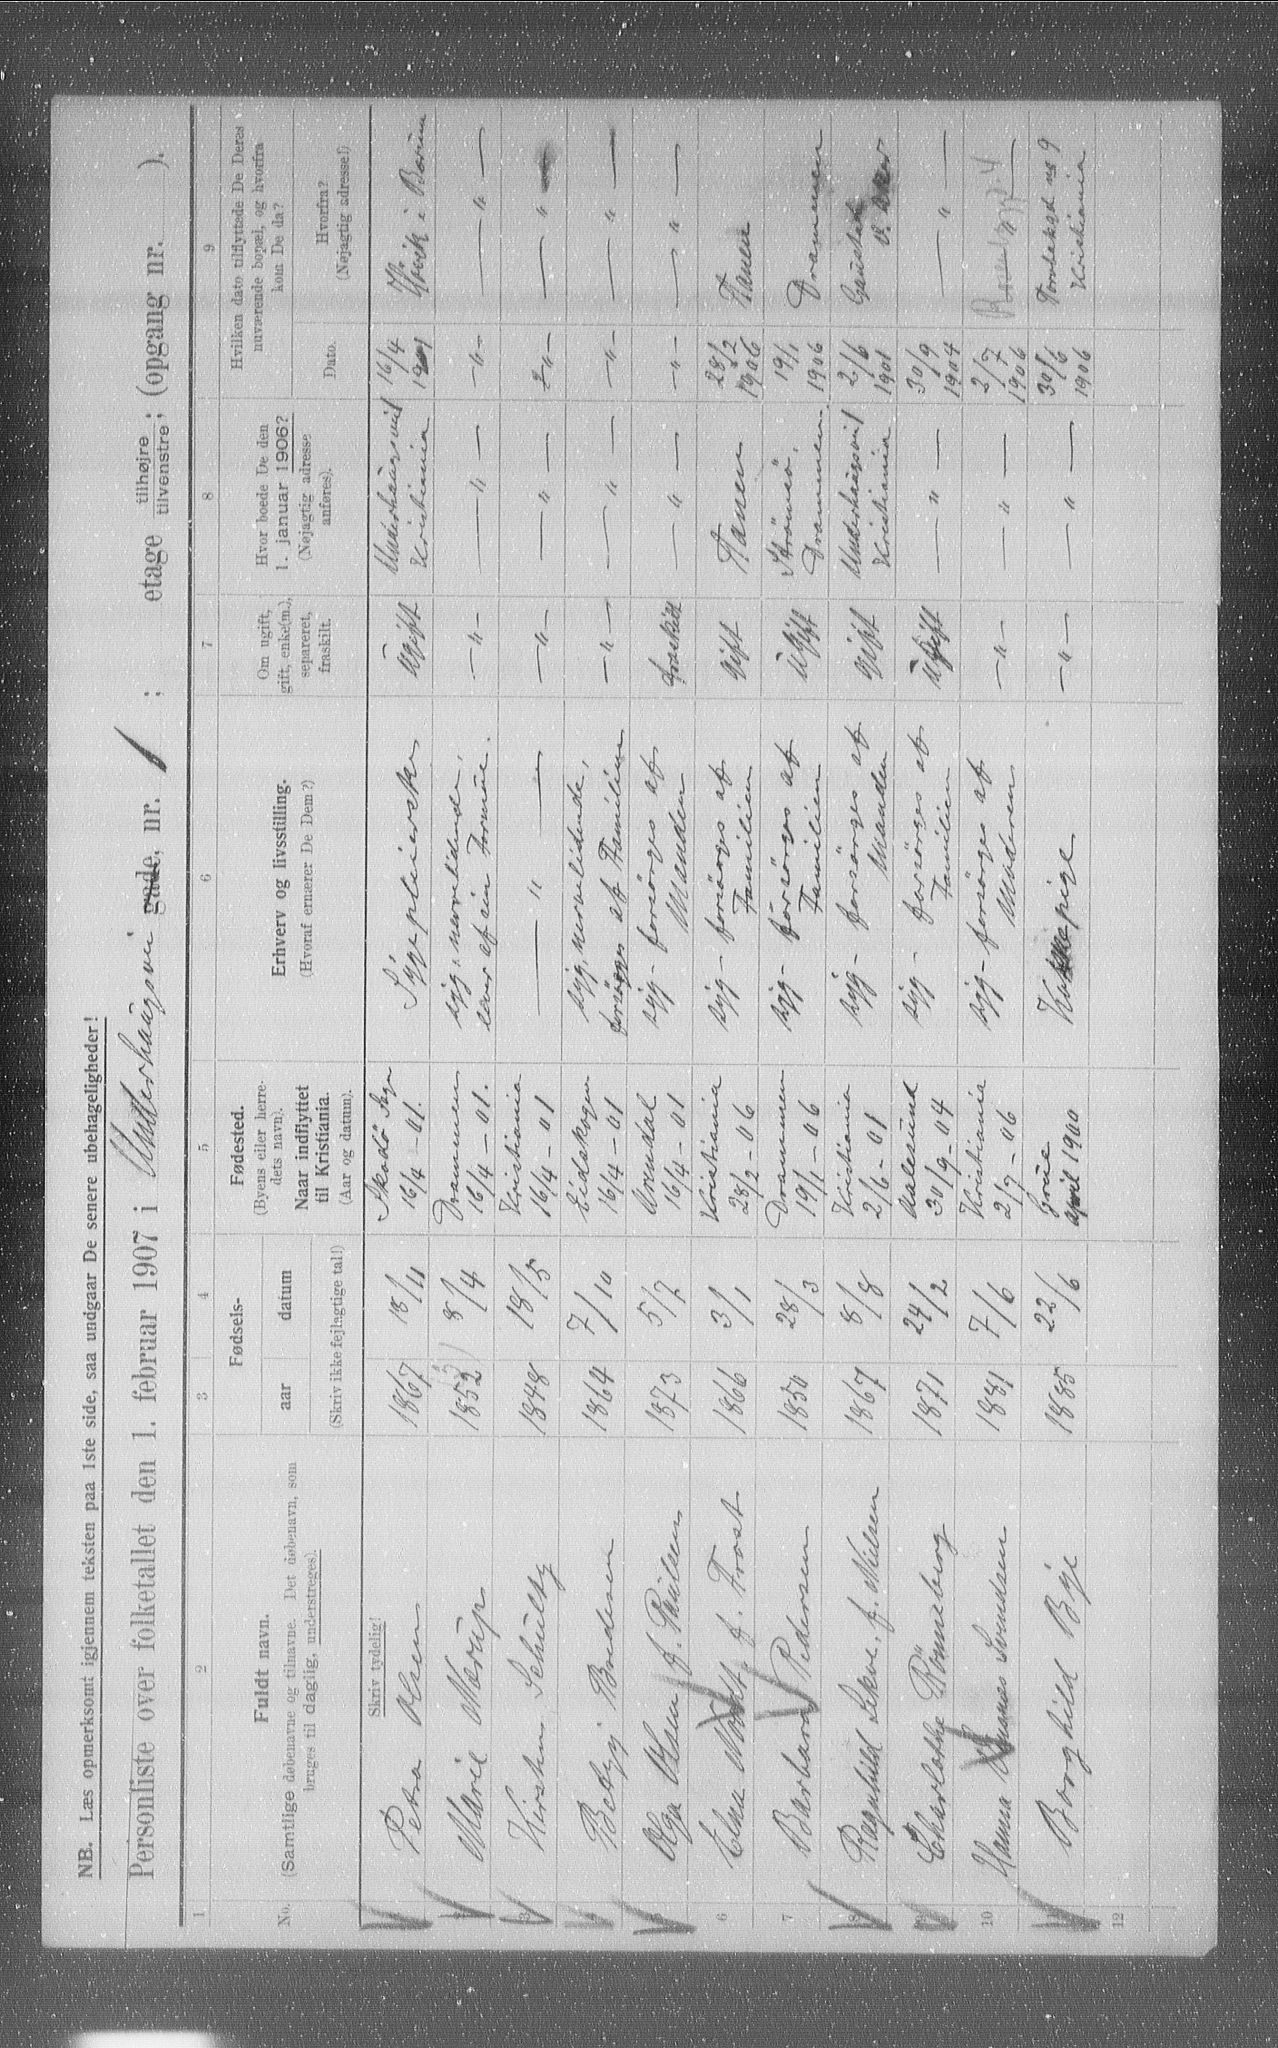 NB. Læs opmerksomt igjennem teksten paa 1ste side, saa undgaar De senere ubehageligheder!
Personliste over folketallet den 1. februar 1907 i Underhaugsvei gade, nr. 1; etage tilhøjre / tilvenstre; (opgang nr. ).
1 2 3 4 5 6 7 8 9
No.
Fuldt navn.
(Samtlige døbenavne og tilnavne. Det døbenavn, som
bruges til daglig, understreges).
Skriv tydelig!
Fødsels-
aar datum
(Skriv ikke fejlagtige tal!)
Fødested.
(Byens eller herre-
dets navn).
Naar indflyttet
til Kristiania.
(Aar og datum).
Erhverv og livsstilling.
(Hvoraf ernærer De Dem?)
Om ugift,
gift, enke(m.),
separeret,
fraskilt.
Hvor boede De den
1. januar 1906?
(Nøjagtig adresse
anføres).
Hvilken dato tilflyttede De Deres
nuværende bopæl, og hvorfra
kom De da?
Dato.
Hvorfra?
(Nøjagtig adresse!)
Petra Olsen 1867 18/11 Skodø Sogn 16/4-01. Sygepleierske Ugift Underhaugsvei 1 Kristiania 16/4 1901 i Bærum
2 Marie Nærup 1852 8/4 Drammen 16/4-01. syg, nervelidende, lever af sin Formue. -"- -"- -"- -"-
3 Kirsten Schultz 1848 18/5 Kristiania 16/4-01 -"- -"- -"- -"- -"-
4 Betzy Bredesen 1864 7/10 Eidskogen 16/4-01 syg, nervelidende, forsørges af Familien -"- -"- -"- -"-
5 Olga Olsen f. Paulsen 1873 5/7 Arendal 16/4-01 syg - forsörges af Manden fraskilt -"- -"- -"-
6 f. Frost 1866 3/1 Kristiania 28/2-06 syg - forsörges af Familien Gift Fanen 28/2 1906 Fanen
7 Barbara Pedersen 1850 28/3 Drammen 19/1-06 syg - forsörges af Familien Ugift Strömsö, Drammen. 19/1 1906 Drammen
8 Ragnhild f. Nielsen 1867 8/8 Kristiania 2/6-01 syg - forsörges af Manden Gift Underhaugsvei 1 Kristiania 2/6 1901 Gaustad V. Aker
Charlotte Rönneberg 1871 24/2 Aalesund 30/9-04 syg - forsörges af Familien Ugift -"- 30/9 1904 -"-
10 Hanna Svendsen 1881 7/6 Kristiania 2/7-06 syg - forsörges af Moderen -"- -"- 2/7 1906
Borghild Bye 1885 22/6 Grue april 1900 -"- -"- 30/6 1906 nº 9 Kristiania
12